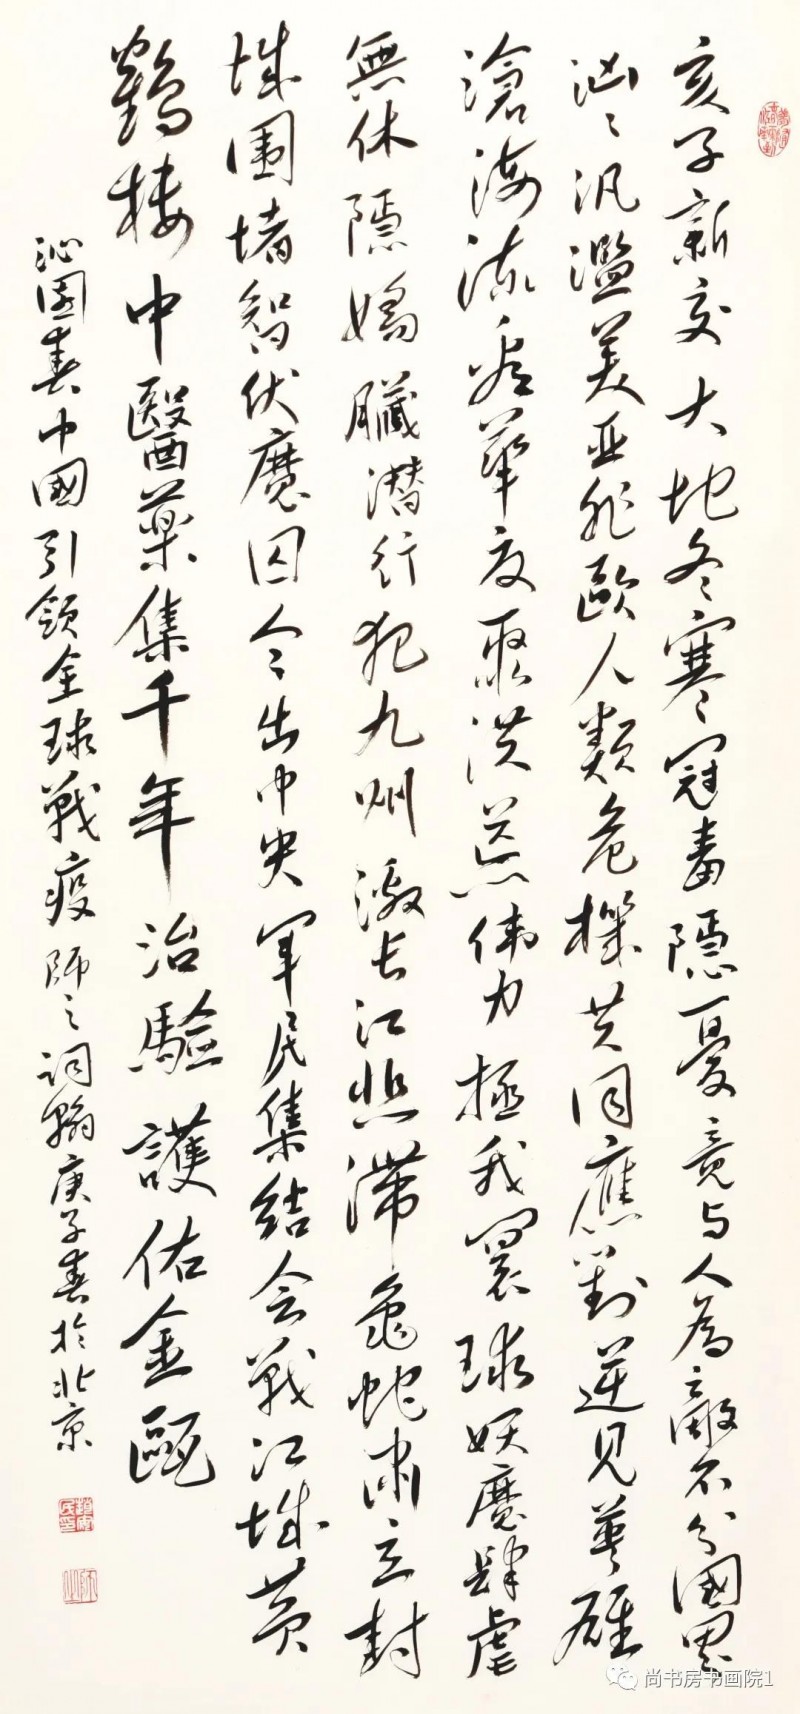 亥子新交大地冬寒冠毒隱憂竟与人為敵不分國界
汹〻汎濫美亚非歐人類危機共同應對逆見英雄
滄海流華夏聚洪荒偉力拯我寰球妖魔肆虐
無休隱嬌臟潜行犯九州激长江悲滞龜蛇肅立封
城圍堵智伏魔囚令出中央軍民集结会戰江城黄
鶴楼中醫藥集千年治驗護佑金甌
沁園春中國引領全球戰疫師之词翰庚子春於北京
尚书房书画院1